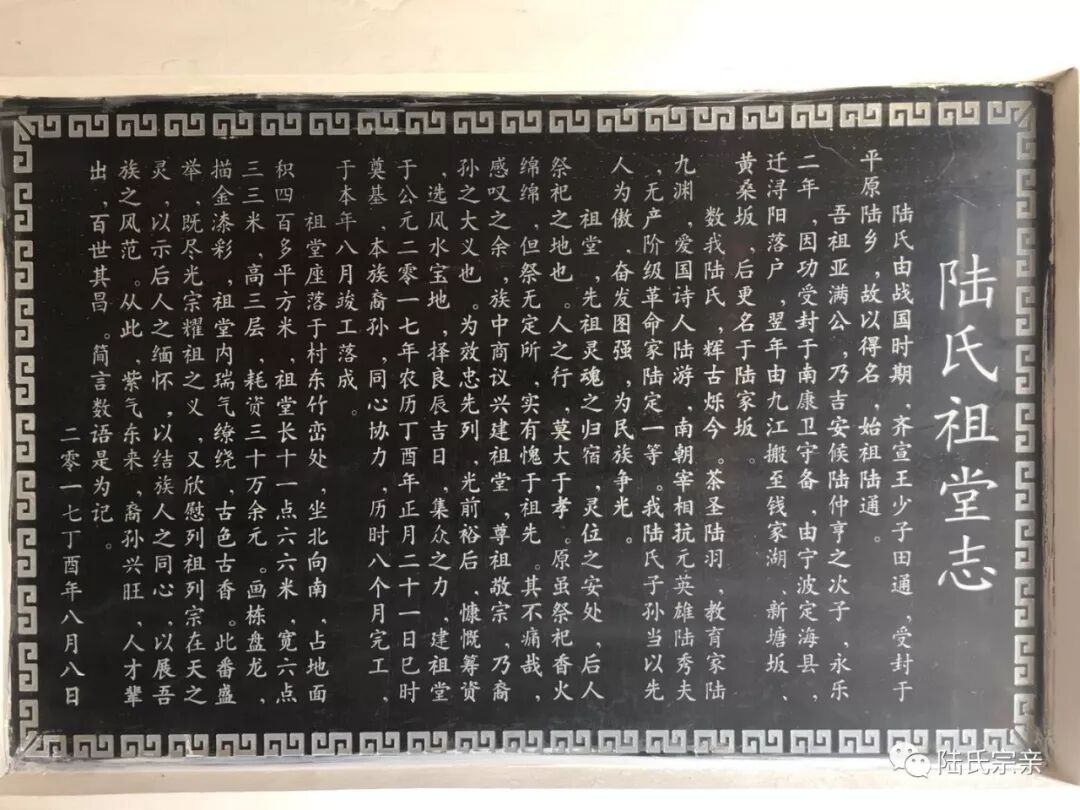 陆氏祖堂志
陆氏由战国时期，齐宣王少子田通，受封于
平原陆乡，故以得名，始祖陆通。
吾祖亚满公，乃吉安候陆仲亨之次子，永乐
二年，因功受封于南康卫守备，由宁波定海县，
迁浔阳落户，翌年由九江搬至钱家湖、新塘坂、
黄桑坂，后更名于陆家坂。
数我陆氏，辉古烁今。茶圣陆羽，教育家陆
九渊，爱国诗人陆游，南朝宰相抗元英雄陆秀夫
，无产阶级革命家陆定一等。我陆氏子孙当以先
人为傲，奋发图强，为民族争光。
祖堂，先祖灵魂之归宿，灵位之安处，后人
祭祀之地也。人之行，莫大于孝。原虽祭祀香火
绵绵，但祭无定所，实有愧于祖先。其不痛哉，
感叹之余，族中商议兴建祖堂，尊祖敬宗，乃裔
孙之大义也。为效忠先列，光前裕后，慷慨筹资
，选风水宝地，择良辰吉日，集众之力，建祖堂
于公元二零一七年农历丁酉年正月二十一日巳时
奠基，本族裔孙，同心协力，历时八个月完工，
于本年八月竣工落成。
祖堂座落于村东竹峦处，坐北向南，占地面
积四百多平方米，祖堂长十一点六六米，宽六点
三三米，高三层，耗资三十万余元。画栋盘龙，
描金漆彩，祖堂内瑞气缭绕，古色古香。此番盛
举，既尽光宗耀祖之义，又欣慰列祖列宗在天之
灵，以示后人之缅怀，以结族人之同心，以展吾
族之风范。从此，紫气东来，裔孙兴旺，人才辈
出，百世其昌。简言数语是为记。
二零一七丁酉年八月八日
陆氏宗亲